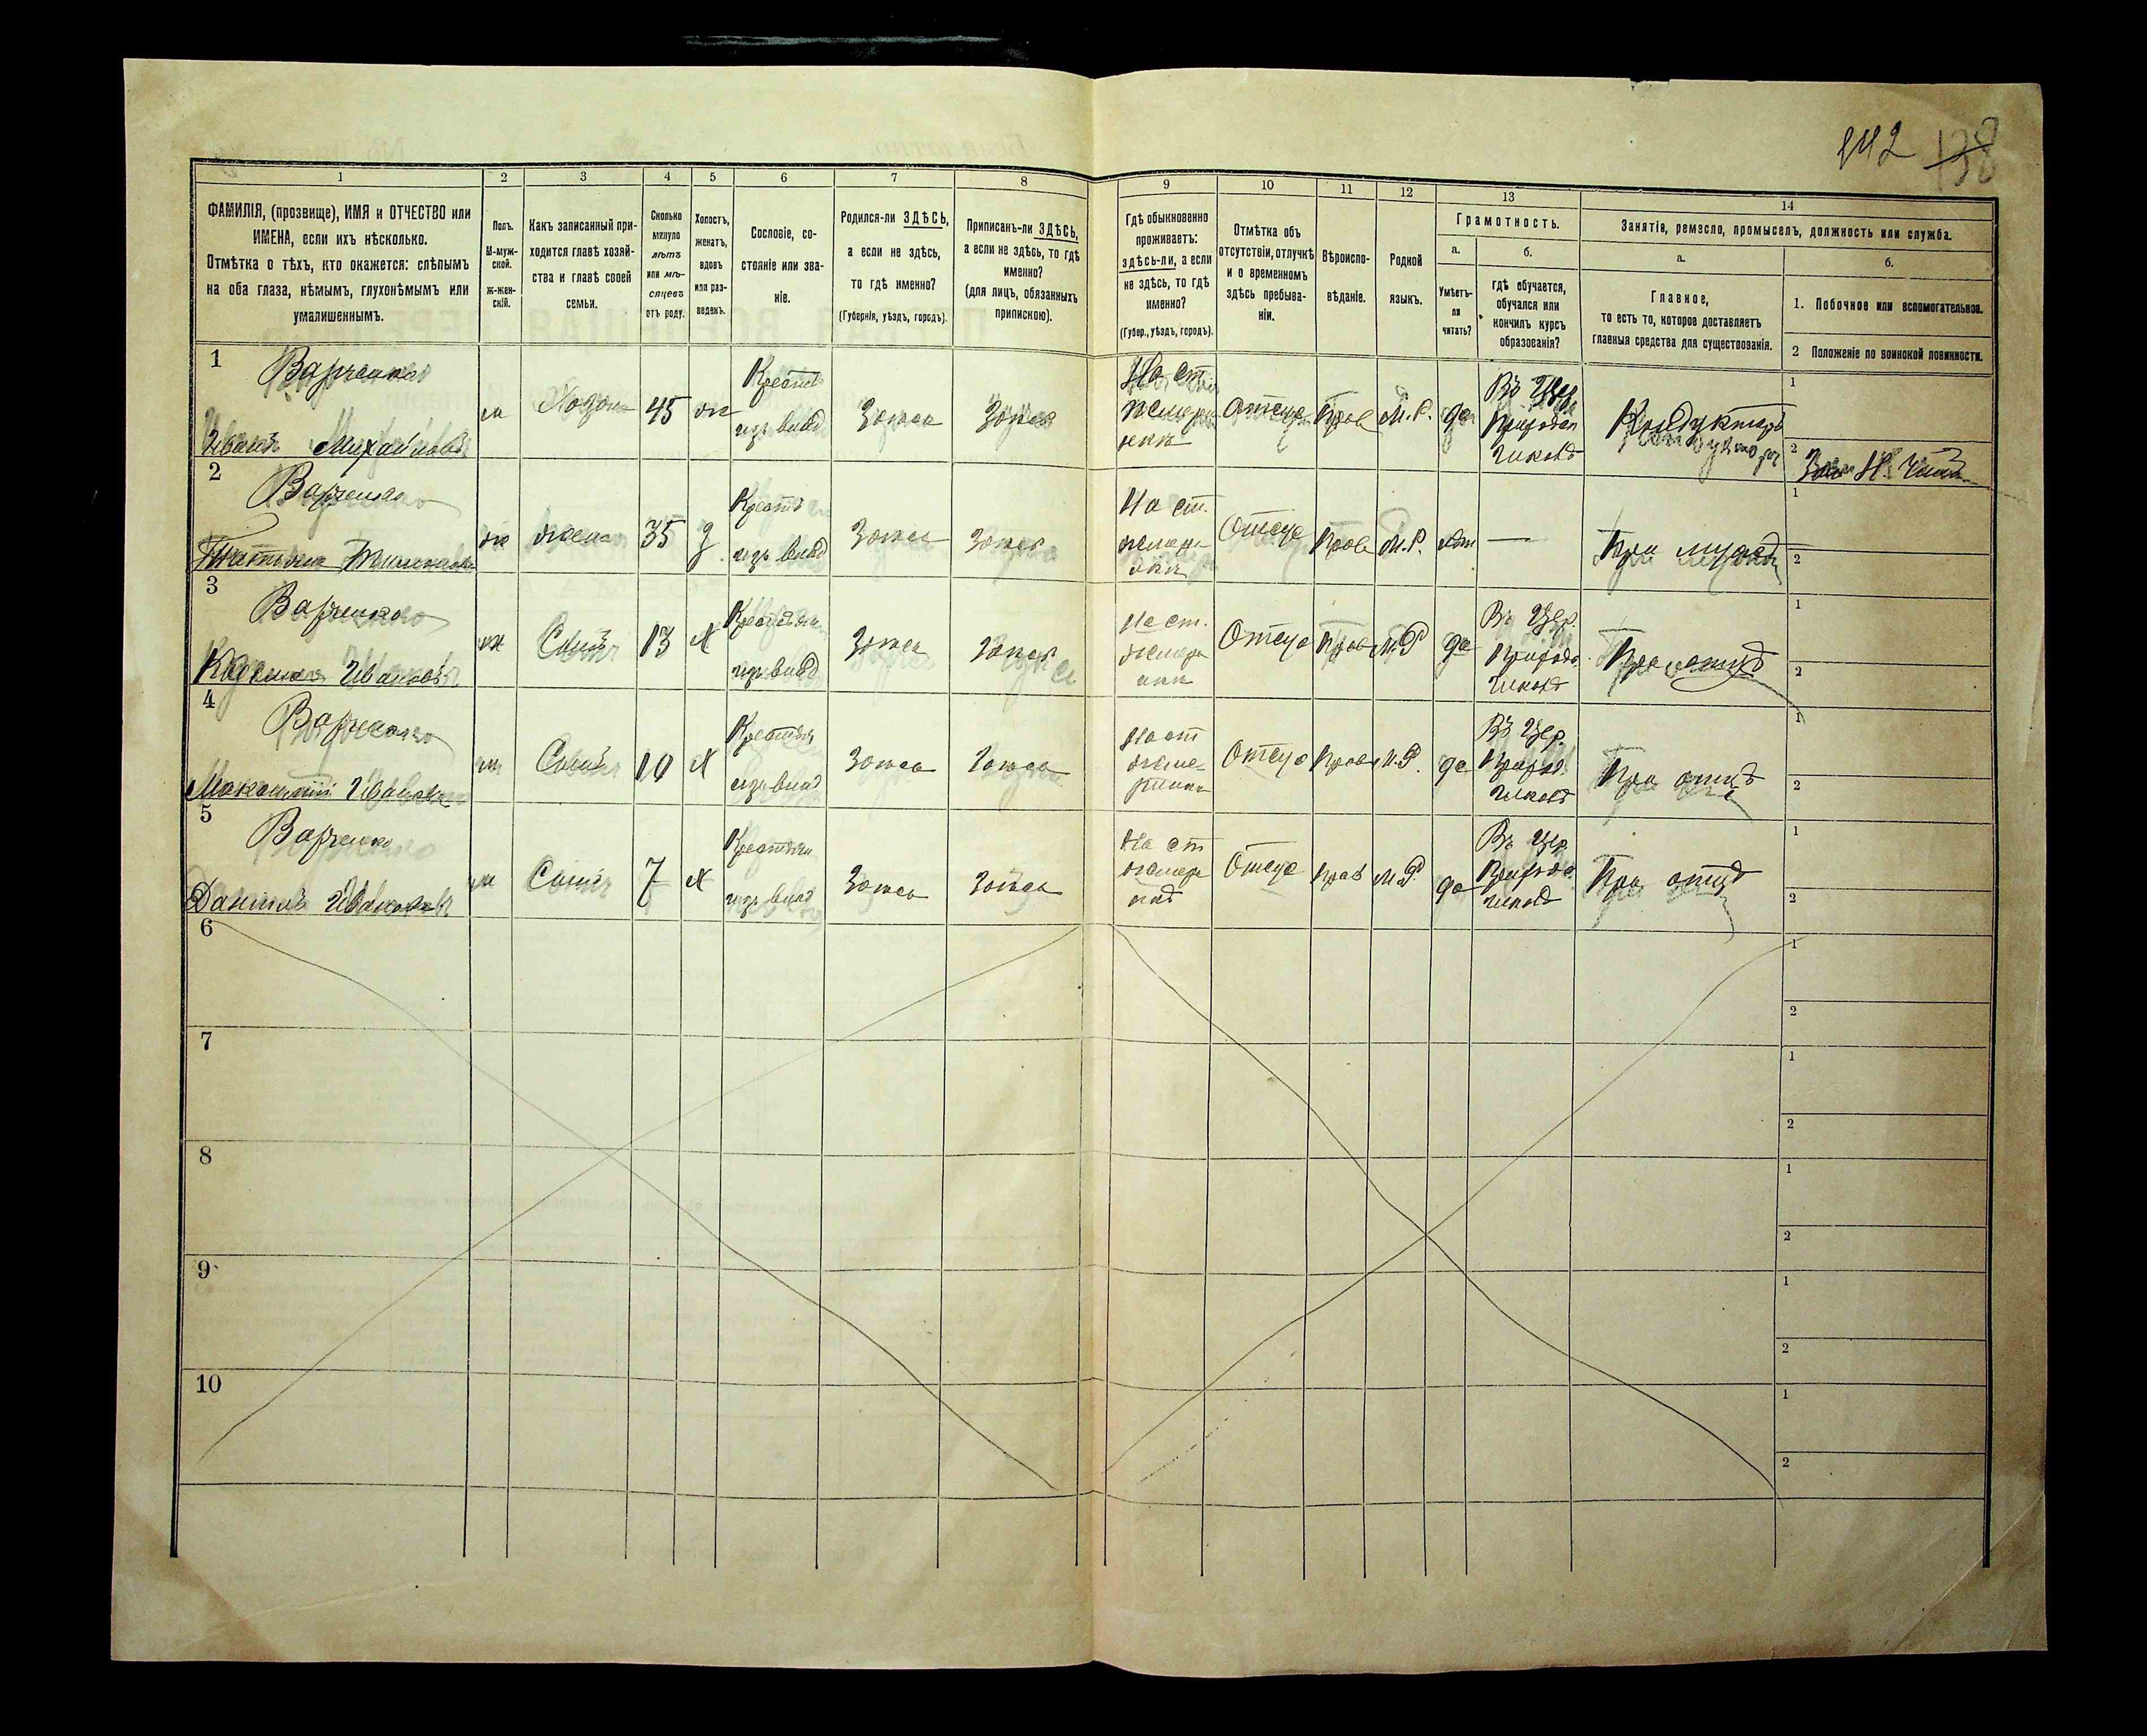 142 138
1 2 3 4 5 6 7 8 9 10 11 12 13 14
ФАМИЛІЯ, (прозвище), ИМЯ и ОТЧЕСТВО или ИМЕНА, если ихъ нѣсколько.
Отмѣтка о тѣхъ, кто окажется: слѣпымъ на оба глаза, нѣмымъ, глухонѣмымъ или умалишеннымъ.
Полъ.
М-муж-
ской.
ж-жен-
скій.
Какъ записанный при-
ходится главѣ хозяй-
ства и главѣ своей
семьи.
Сколько
минуло
лѣтъ
или мѣ-
сяцевъ
отъ роду.
Холостъ,
женатъ,
вдовъ
или раз-
веденъ.
Сословіе, со-
стояніе или зва-
ніе.
Родился-ли ЗДѢСЬ,
а если не здѣсь,
то гдѣ именно?
(Губернія, уѣздъ, городъ).
Приписанъ-ли ЗДѢСЬ,
а если не здѣсь, то гдѣ
именно?
(для лицъ, обязанныхъ
припискою).
Гдѣ обыкновенно
проживаетъ:
здѣсь-ли, а если
не здѣсь, то гдѣ
именно?
(Губер., уѣздъ, городъ).
Отмѣтка объ
отсутствіи, отлучкѣ
и о временномъ
здѣсь пребыва-
ніи.
Вѣроиспо-
вѣданіе.
Родной
языкъ.
Грамотность.
а.
Умѣетъ-
ли
читать?
б.
гдѣ обучается,
обучался или
кончилъ курсъ
образованія?
Занятія, ремесло, промыселъ, должность или служба.
а.
Главное,
то есть то, которое доставляетъ
главныя средства для существованія.
б.
1. Побочное или вспомогательное.
2 Положеніе по воинской повинности.
1
Варченко
Иванъ Михайловъ
м
Хозяин
45
же
Крестн
изъ влад
Здѣсь
Здѣсь
На ст.
Жмерин
Отсут
Прав
М. Р.
да
Въ Цер.
Приход
школѣ
Кондукторъ
1
2
2
Варченко
Татьяна
ж
жена
35
З
Крестн
изъ влад
Здѣсь
Здѣсь
На ст.
жмери
Отсут
Прав
М.Р.
нѣт
—
При мужѣ
1
2
3
Варченко
Ивановъ
м
Сынъ
13
Х
Крестьян
изъ влад
Здѣсь
Здѣсь
На ст.
жмери
Отсут
Прав
М.Р
да
Въ Цер.
Приход
школѣ
При отцѣ
1
2
4
Варченко
Ивановъ
м
Сынъ
10
Х
Крестьян
изъ влад
Здѣсь
Здѣсь
На ст
жме-
ринки
Отсут
Прав
М.Р.
да
Въ Цер.
Приход.
школѣ
При отцѣ
1
2
5
Варченко
Даніилъ Ивановъ
м
Сынъ
7
Х
Крестьян
изъ влад
Здѣсь
Здѣсь
На ст
жмери
Отсут
Прав
М.Р.
да
Въ Цер.
Приход
школѣ
При отцѣ
1
2
6
1
2
7
1
2
8
1
2
9
1
2
10
1
2